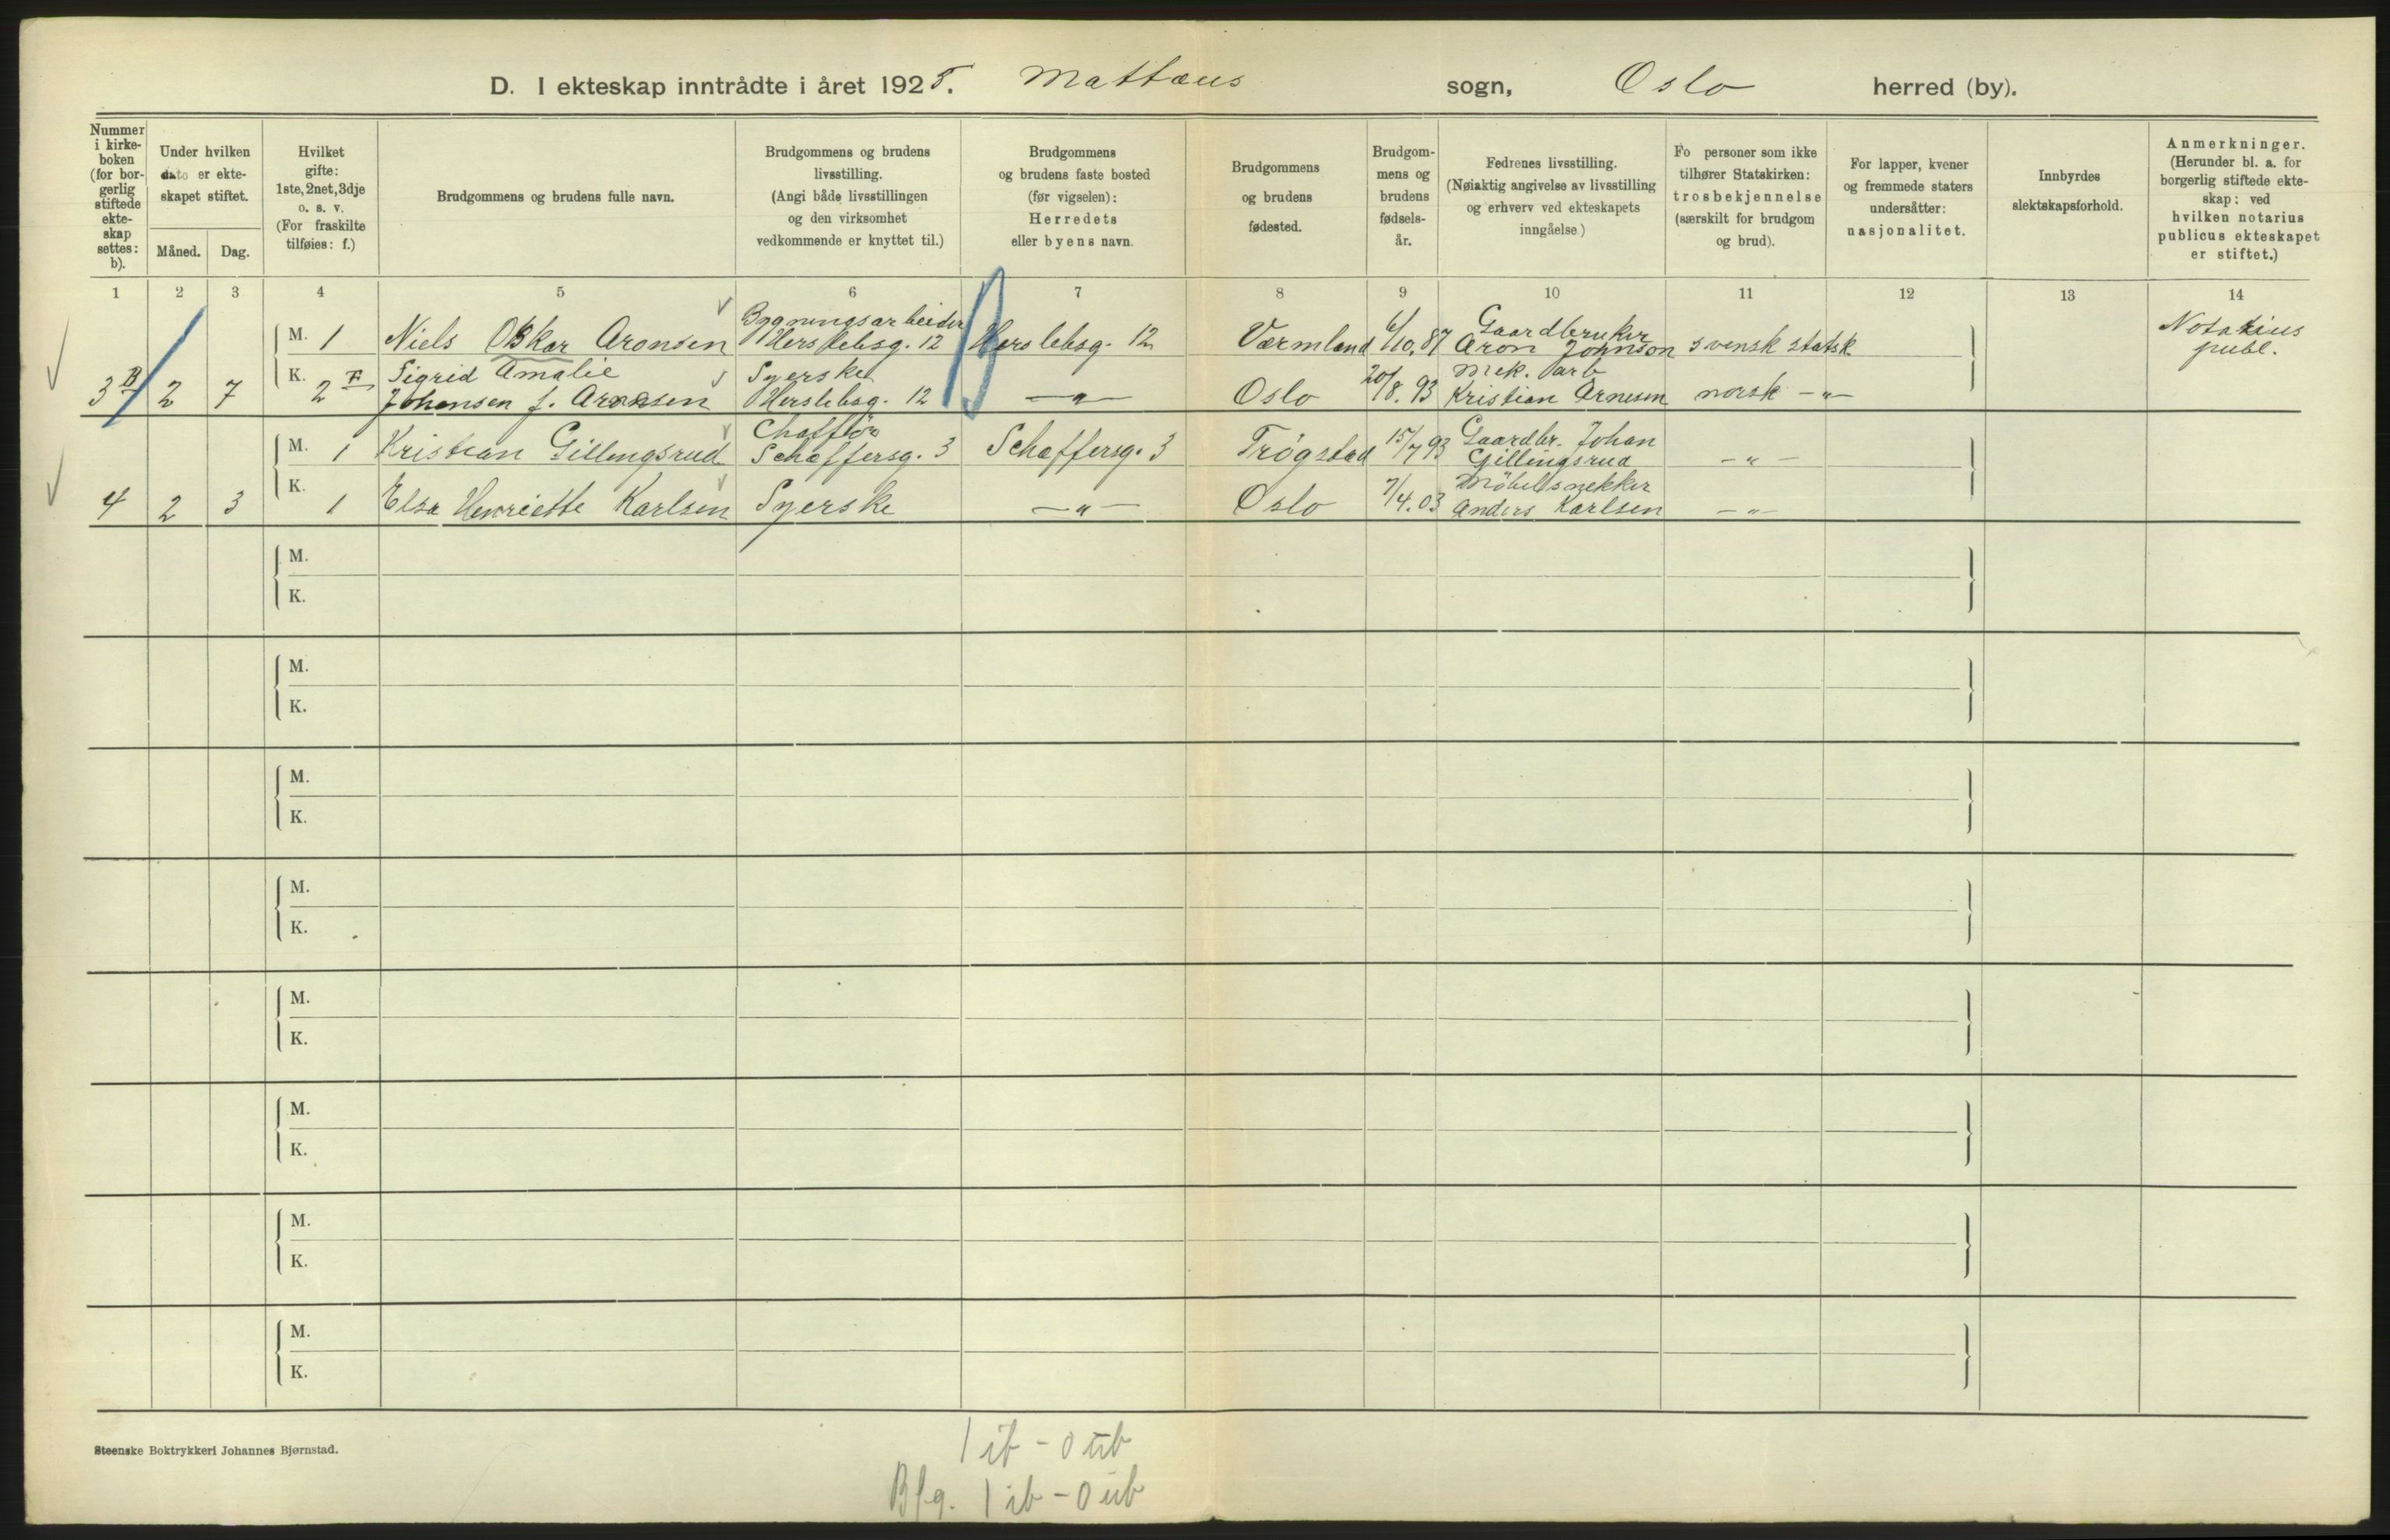 D. I ekteskap inntrådte i året 1925. Mattæus sogn, Oslo herred (by).
Nummer i kirke-boken (for bor-gerlig stiftede ekte-skap settes: b).
Under hvilken dato er ekte-skapet stiftet.
Måned. Dag.
Hvilket gifte: 1ste, 2net, 3dje o. s. v. (For fraskilte tilføies: f.)
Brudgommens og brudens fulle navn.
Brudgommens og brudens livsstilling. (Angi både livsstillingen og den virksomhet vedkommende er knyttet til.)
Brudgommens og brudens faste bosted (før vigselen): Herredets eller byens navn.
Brudgommens og brudens fødested.
Brudgom-mens og brudens fødsels-år.
Fedrenes livsstilling. (Nøiaktig angivelse av livsstilling og erhverv ved ekteskapets inngåelse)
Fo personer som ikke tilhører Statskirken: trosbekjennelse (særskilt for brudgom og brud).
For lapper, kvener og fremmede staters undersåtter: nasjonalitet.
Innbyrdes slektskapsforhold.
Anmerkninger. (Herunder bl. a. for borgerlig stiftede ekte-skap: ved hvilken notarius publicus ekteskapet er stiftet.)
1 2 3 4 5 6 7 8 9 10 11 12 13 14
Bygningsarbeider Gaardbruker Notarius
M. 1 Niels Oskar Aronsen Herslebsg. 12 Herslebsg. 12 Værmland 6/10.87 Aron Johnson svensk statsk. publ.
K. 2 F Sigrid Amalie Syerske Mek. arb
3 B 2 7 Johansen f. Arnesen Herslebsg. 12 —"— Oslo 20/8.93 Kristian Arnesen norsk —"—
Chafför Gaardbr. Johan
M. 1 Kristian Gillingsrud Schæffersg. 3 Schæffersg. 3 Trøgstad 15/7 93 Gillingsrud —"—
K. Møbelsnekker
4 2 3 1 Elsa Henriette Karlsen Syerske —"— Oslo 7/4.03 Anders Karlsen —"—
M.
K.
M.
K.
M.
K.
M.
K.
M.
K.
M.
K.
M.
K.
M.
K.
Steenske Boktrykkeri Johannes Bjørnstad.
1 ib - 0 ub
Bfg. 1 ib - 0 ub